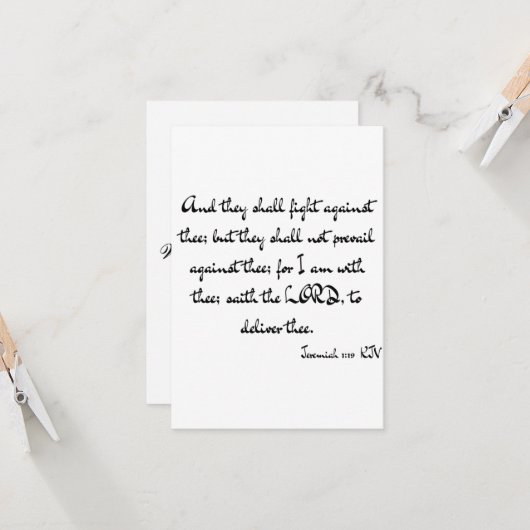 And they shall fight against
thee; but they shall not prevail
against thee; for I am with
thee; saith the LORD, to
deliver thee.
Jeremiah 1:19 KJV